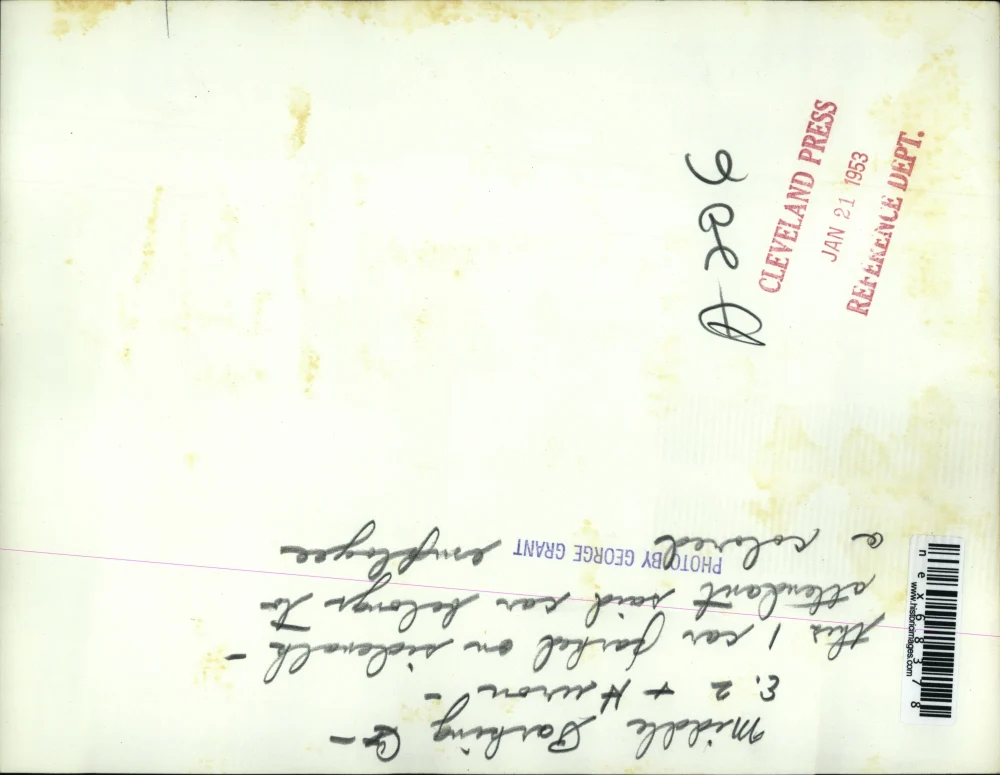 CLEVELAND PRESS
JAN 21 1953
REFERENCE DEPT.
Middle Parking Co-
E. 2 + Huron -
this 1 car parked on sidewalk -
attendant said car belongs to
a colored employee
PHOTO BY GEORGE GRANT
nex68378
www.historicimages.com